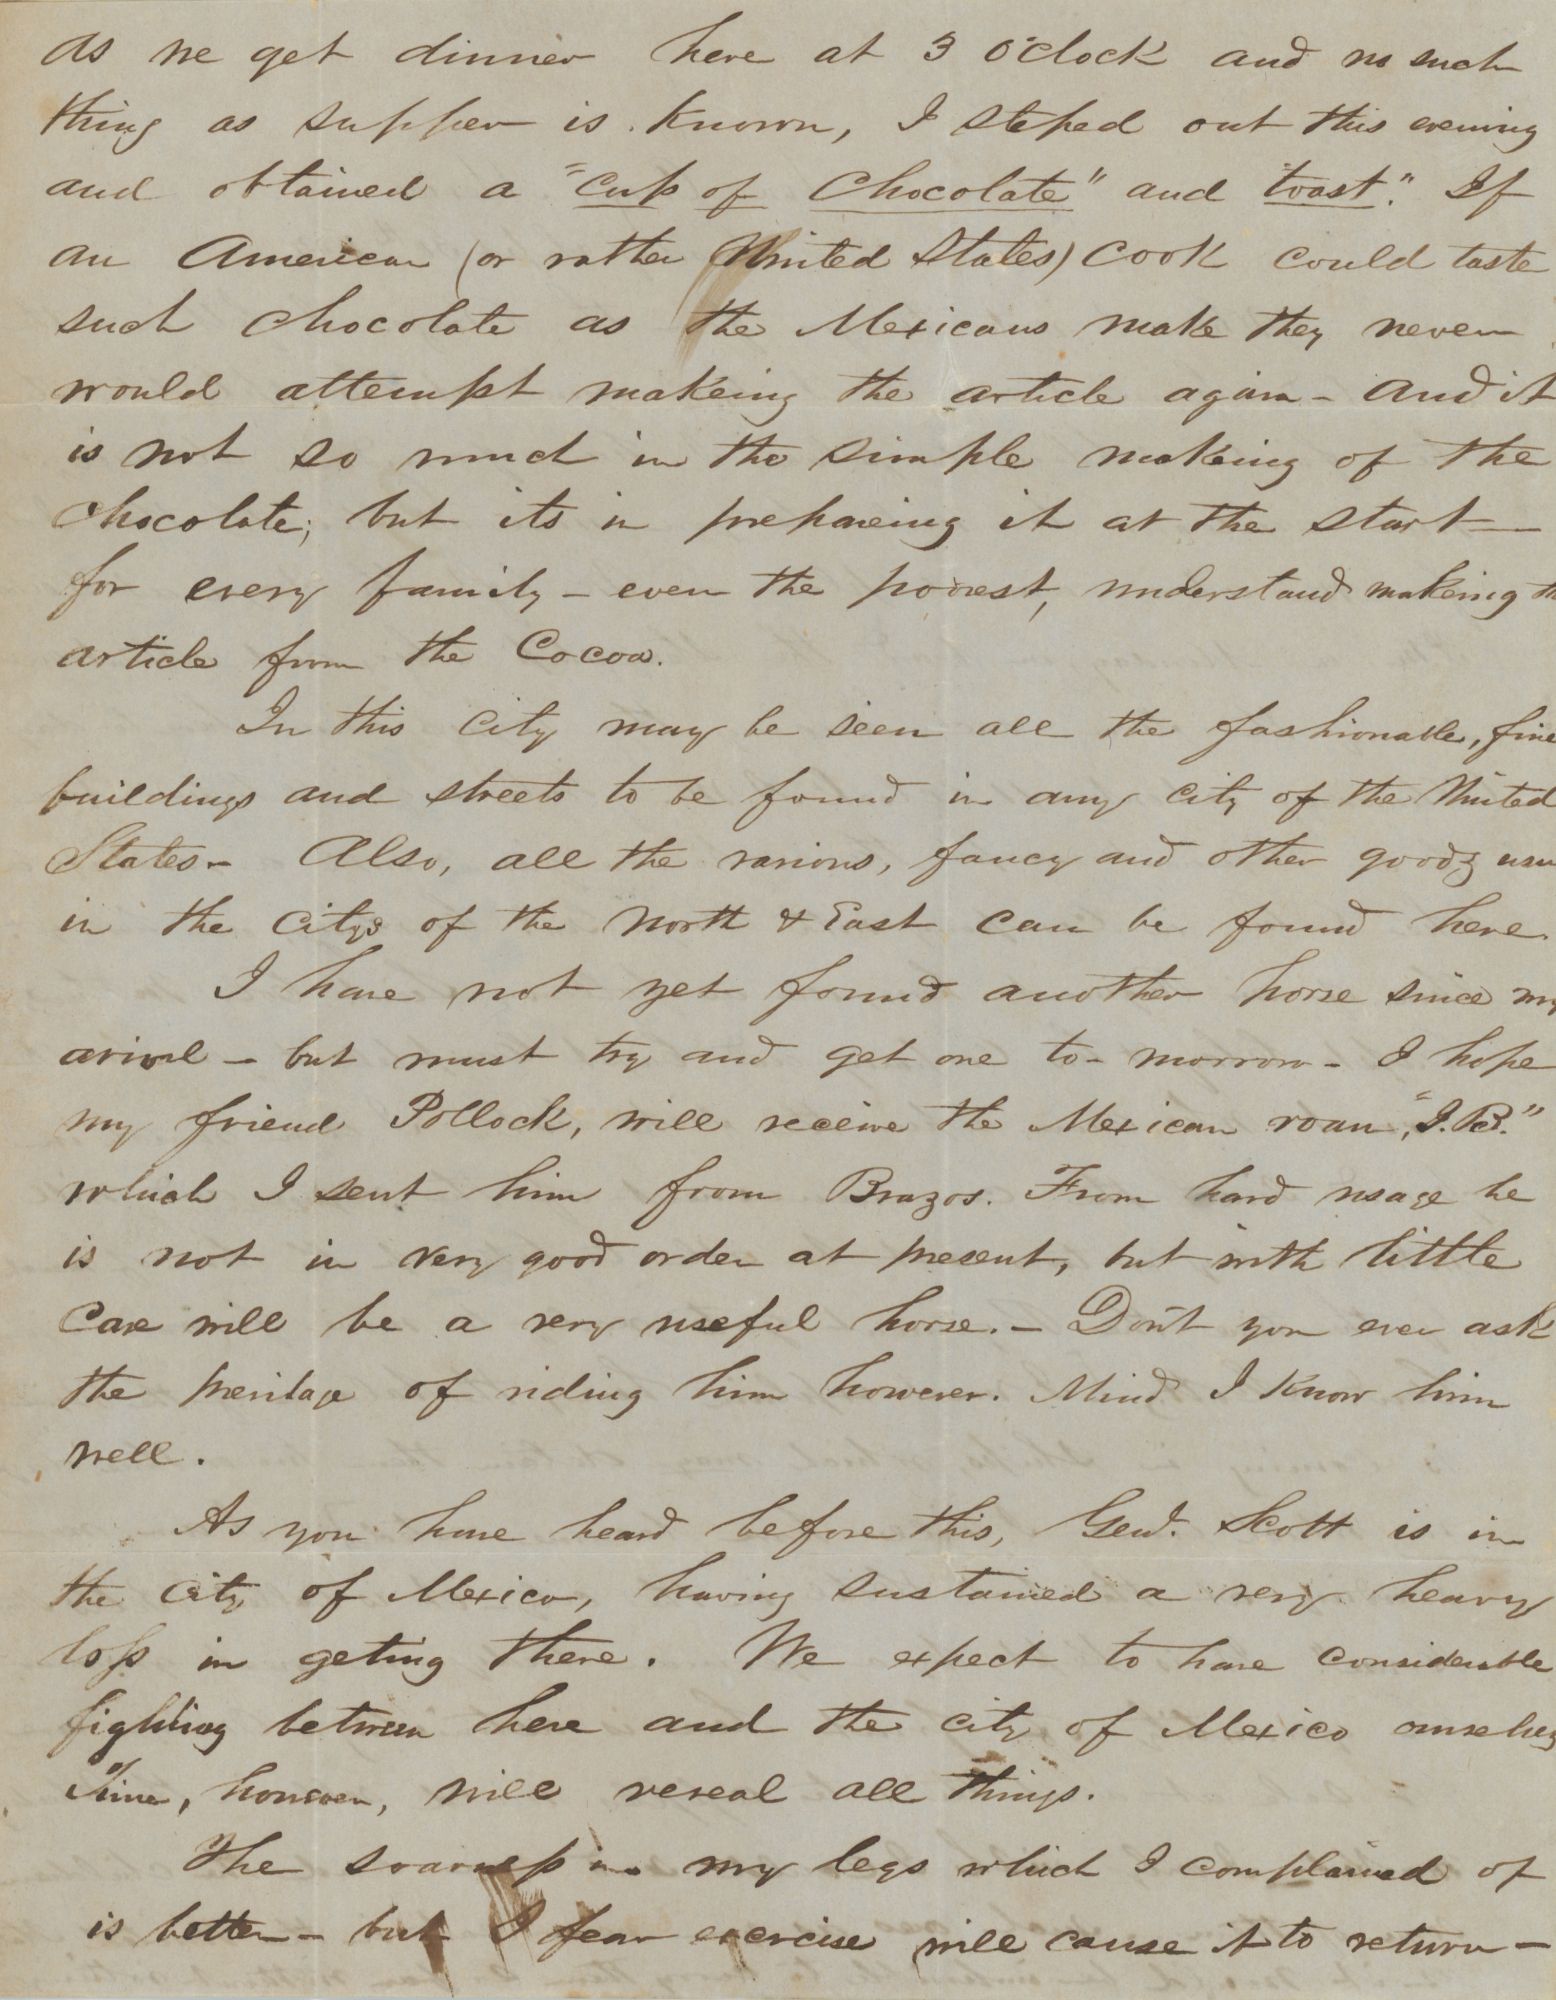 As we get dinner here at 3 o'clock and no such
thing as supper is known, I steped out this evening
and obtained a "cup of chocolate" and toast". If
an American (or rather United States) cook could taste
such chocolate as the Mexicans make they never
would attempt makeing the article again - and it
is not so much in the simple makeing of the
chocolate; but its in prepareing it at the start -
for every family - even the poorest, understand makeing th
article from the Cocoa.
In this city may be seen all the fashionable, fine
buildings and streets to be found in any city of the United
States - Also, all the various, fancy and other goods usu
in the citys of the North & East can be found here.
I have not yet found another horse since my
arival - but must try and get one to-morrow - I hope
my friend Pollock, will receive the Mexican roan, "J. B."
which I sent him from Brazos. From hard usage he
is not in very good order at present, but with little
care will be a very useful horse. - Don't you ever ask
the privilage of riding him however. Mind I know him
well.
As you have heard before this, Genl. Scott is in
the city of Mexico, having sustained a very heavy
loss in geting there. We expect to have considerable
fighting between here and the city of Mexico ourselves
Time, however, will reveal all things.
The soarness in my legs which I complained of
is better - but I fear exercise will cause it to return -